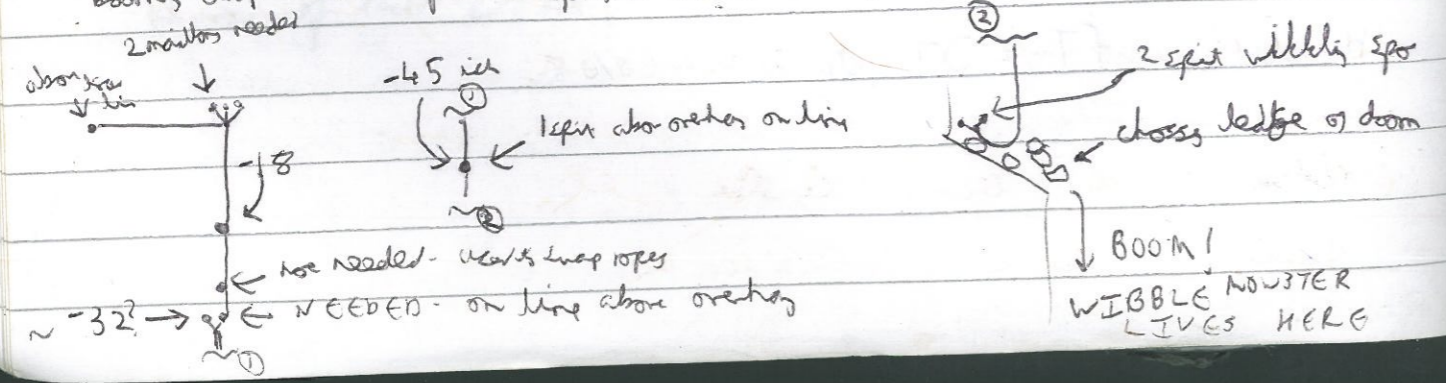 2 maillons needed
-18
not needed - used to swap ropes
NEEDED - on line above overhang
~ -32?
①
-45 ish
①
1 spit above overhang on line
②
②
2 spit wibbly
chossy ledge of doom
BOOM!
WIBBLE MONSTER
LIVES HERE